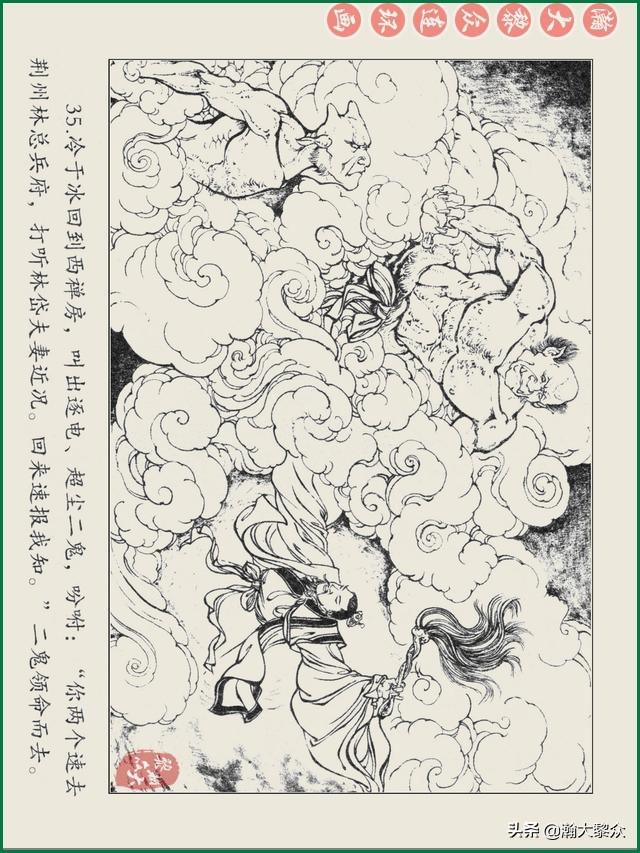 瀚大黎众连环画
35.冷于冰回到西禅房，叫出逐电、超尘二鬼，吩咐：“你两个速去
荆州林总兵府，打听林岱夫妻近况。回来速报我知。”二鬼领命而去。
头条 @瀚大黎众